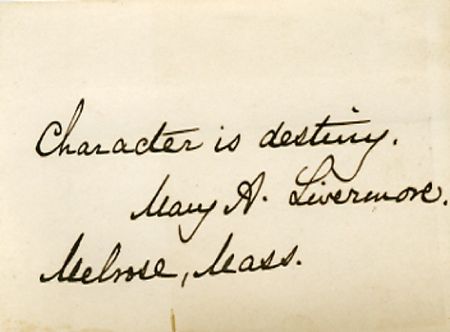 Character is destiny.
Mary A. Livermore.
Melrose, Mass.